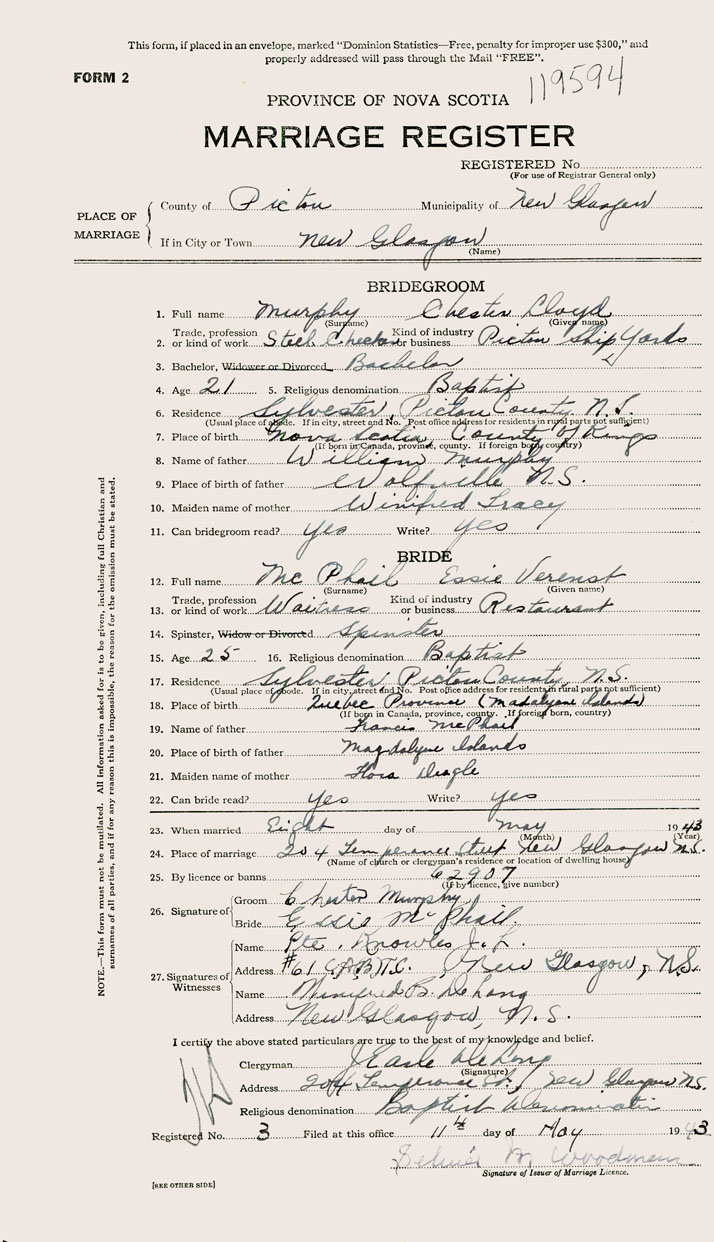 This form, if placed in an envelope, marked "Dominion Statistics—Free, penalty for improper use $300," and
properly addressed will pass through the Mail "FREE".
FORM 2
119594
PROVINCE OF NOVA SCOTIA
MARRIAGE REGISTER
REGISTERED No.
(For use of Registrar General only)
PLACE OF MARRIAGE
County of Pictou Municipality of New Glasgow
If in City or Town New Glasgow
(Name)
BRIDEGROOM
1. Full name Murphy Chester Lloyd
(Surname) (Given name)
2. Trade, profession or kind of work Steel Checker Kind of industry or business Pictou Ship Yards
3. Bachelor, Widower or Divorced Bachelor
4. Age 21 5. Religious denomination Baptist
6. Residence Sylvester, Pictou County N.S.
(Usual place of abode. If in city, street and No. Post office address for residents in rural parts not sufficient)
7. Place of birth Nova Scotia, County of Kings
(If born in Canada, province, county. If foreign born, country)
8. Name of father William Murphy
9. Place of birth of father Wolfville N.S.
10. Maiden name of mother Winifred Tracy
11. Can bridegroom read? Yes Write? Yes
BRIDE
12. Full name Mc Phail Essie Verenst
(Surname) (Given name)
13. Trade, profession or kind of work Waitress Kind of industry or business Restaurant
14. Spinster, Widow or Divorced Spinster
15. Age 25 16. Religious denomination Baptist
17. Residence Sylvester Pictou County, N.S.
(Usual place of abode. If in city, street and No. Post office address for residents in rural parts not sufficient)
18. Place of birth Quebec Province (Madalyne Islands)
(If born in Canada, province, county. If foreign born, country)
19. Name of father Francis McPhail
20. Place of birth of father Magdalyne Islands
21. Maiden name of mother Flora Deagle
22. Can bride read? Yes Write? Yes
23. When married Eight day of May 1943
(Month) (Year)
24. Place of marriage 204 Temperance Street New Glasgow N.S.
(Name of church or clergyman's residence or location of dwelling house)
25. By licence or banns 62907
(If by licence, give number)
26. Signature of
Groom Chester Murphy
Bride Essie McPhail
27. Signatures of Witnesses
Name Pte. Knowles J. L.
Address #61 C.A.B.T.C. New Glasgow, N.S.
Name Winifred B. DeLong
Address New Glasgow, N.S.
I certify the above stated particulars are true to the best of my knowledge and belief.
Clergyman J Earle DeLong
(Signature)
Address 204 Temperance St., New Glasgow N.S.
Religious denomination Baptist
Registered No. 3 Filed at this office 11th day of May 1943
M. Woodman
Signature of Issuer of Marriage Licence.
[SEE OTHER SIDE]
NOTE.—This form must not be mutilated. All information asked for is to be given, including full Christian and
surnames of all parties, and if for any reason this is impossible, the reason for the omission must be stated.